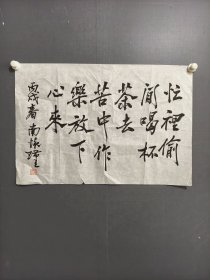 忙裡偷
閒喝杯
茶去
苦中作
樂放下
心來
丙戌春 南